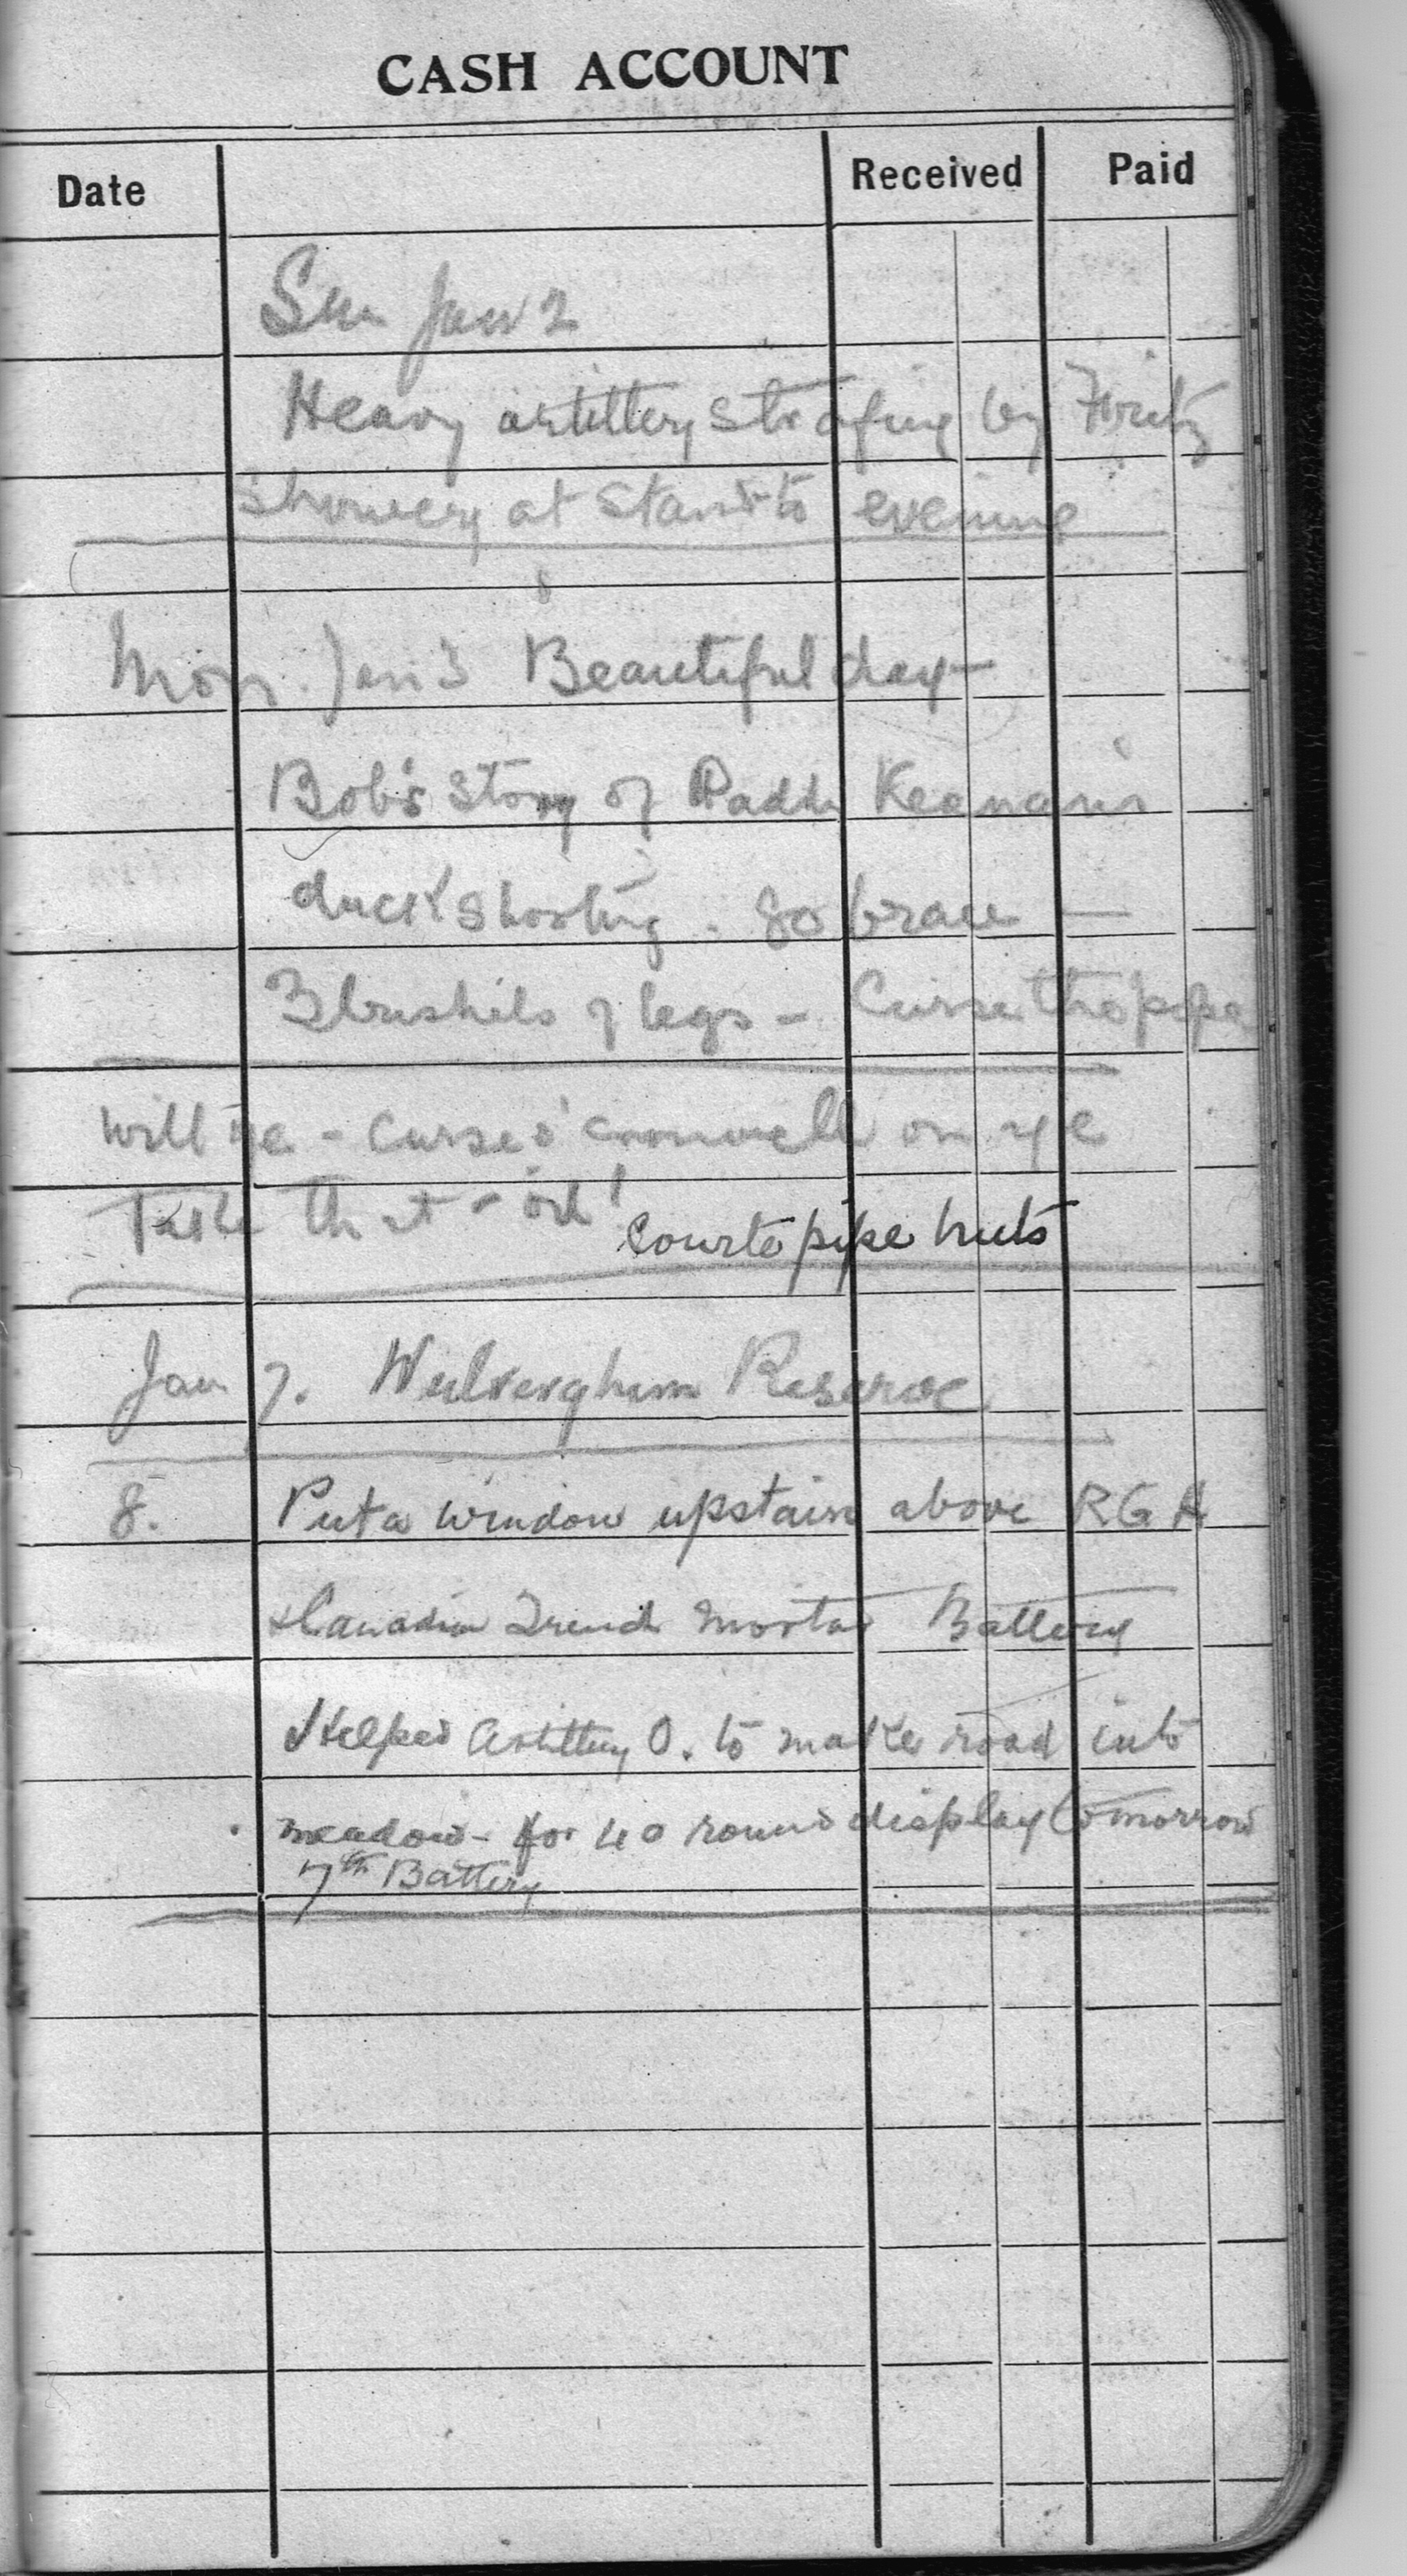 CASH ACCOUNT
Date Received Paid
Sun Jan 2
Heavy artillery strafing by Fritz
Showery at Stand-to evening
Mon. Jan 3 Beautiful day—
Bob's story of Paddy
duck shooting. 80 brace —
3 bushels of legs - Curse the pope
will ye - Curse o' Cromwell on ye
Take that -
Courte pipe huts
Jan 7. Wulverghem Reserve
8. Put a window upstairs above RGA
& Canadian Trench Mortar Battery
Helped Artillery O. to make road into
meadow - for 40 round display tomorrow
7th Battery